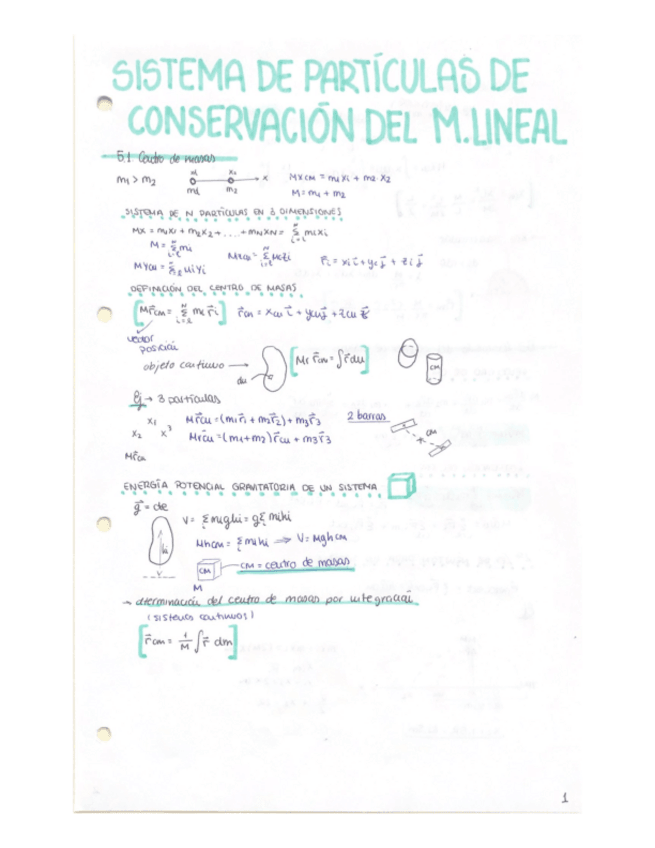 SISTEMA DE PARTÍCULAS DE
CONSERVACIÓN DEL M.LINEAL
5.1 Centro de masas
m₁ > m₂ x₁ x₂ x m₁ m₂ MXcm = m₁x₁ + m₂ x₂
M = m₁ + m₂
SISTEMA DE N PARTÍCULAS EN 3 DIMENSIONES
MX = m₁x₁ + m₂x₂ + .... + mNxN = Σ mixi
M = Σ mi
r⃗i = xi i⃗ + yi j⃗ + zi j⃗
DEFINICIÓN DEL CENTRO DE MASAS
[Mr⃗cm = Σ mi r⃗i] r⃗cm = xcm i⃗ + ycm j⃗ + zcm k⃗
vector
posición
objeto continuo → dm [Mr r⃗cm = ∫r⃗dm] CM
Ej → 3 partículas
x₁ x₂ x³ Mr⃗cm = (m₁r⃗₁ + m₂r⃗₂) + m₃r⃗₃ 2 barras
Mr⃗cm = (m₁+m₂) r⃗cm + m₃r⃗3 CM
Mr⃗cm
ENERGÍA POTENCIAL GRAVITATORIA DE UN SISTEMA
g⃗ = cte
V = Σ mighi = gΣ mihi
Mhcm = Σ mihi ⇒ V = Mghcm
CM CM = centro de masas
M
→ determinación del centro de masas por integración
(sistemas continuos)
[r⃗cm = 1/M ∫ r⃗ dm]
1